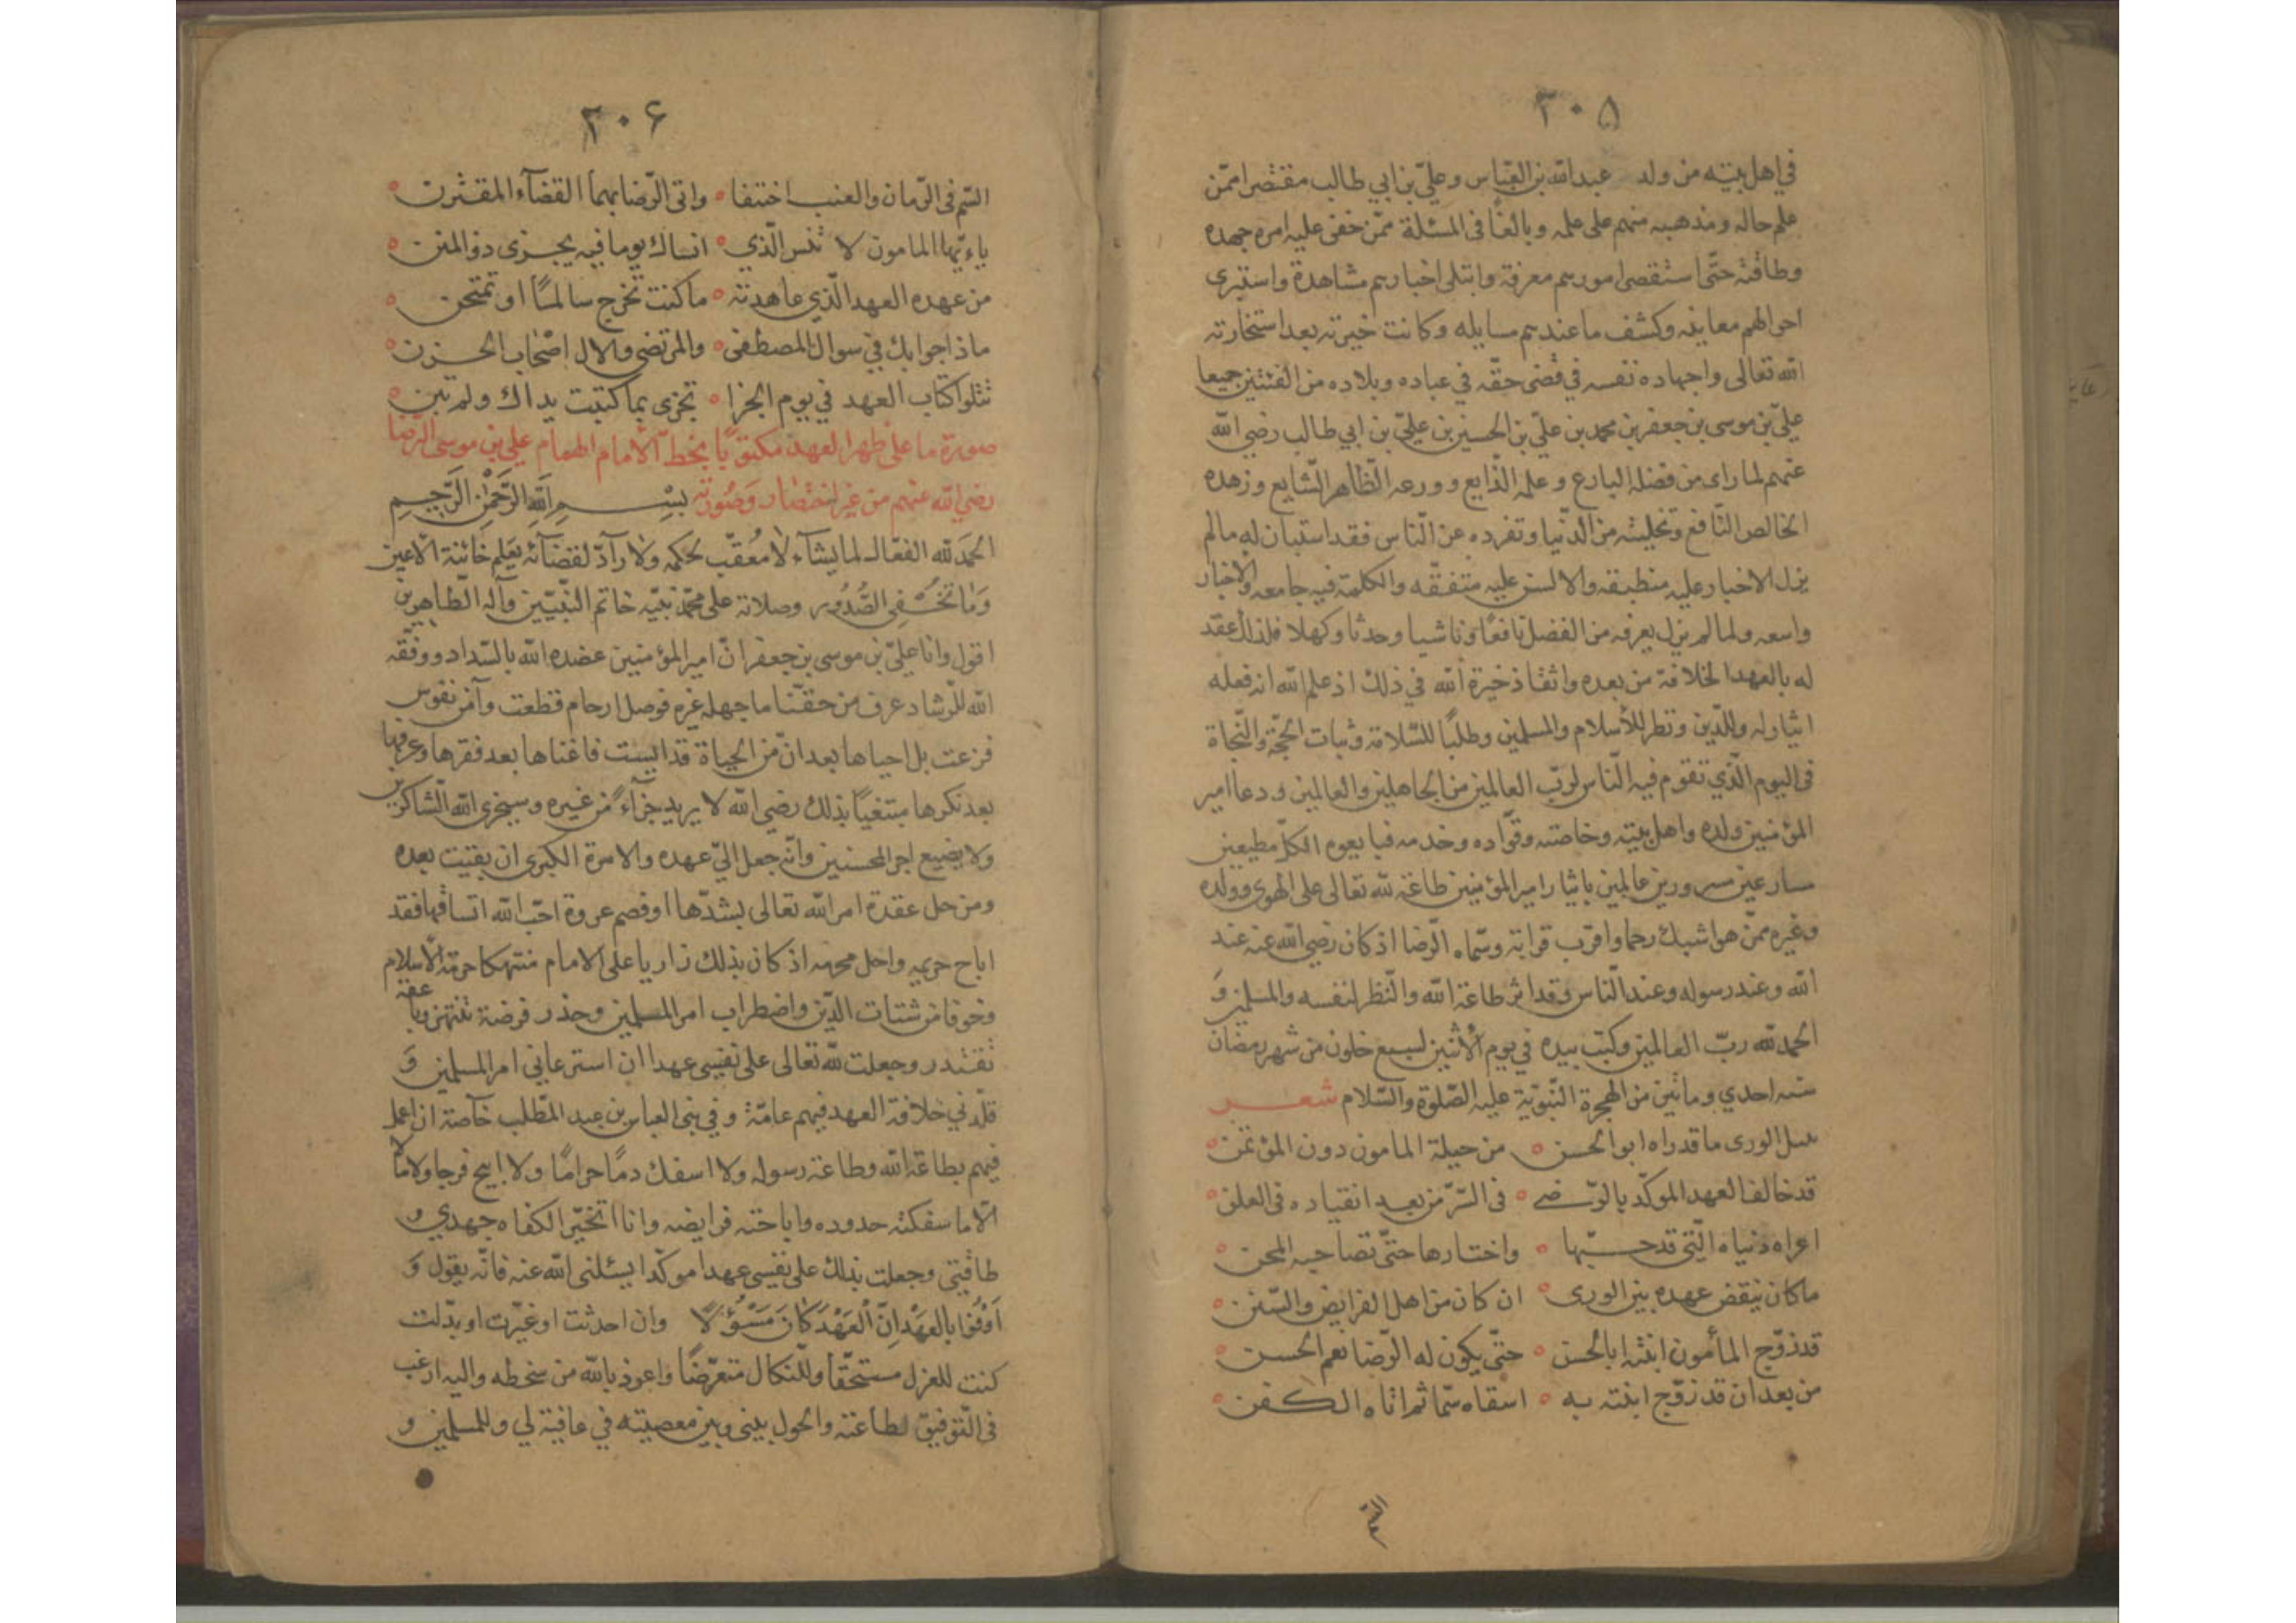 ٣٠۵
في اهل بيته من ولد عبد الله بن العباس وعليّ بن ابي طالب مقتصرا ممّن
علم حاله ومذهبه منهم على علمه وبالغا في المسئلة ممّن خفى عليه امره جهده
وطاقته حتّى استقصى امورهم معرفة وابتلى اخبارهم مشاهدة واستبرى
احوالهم معاينه وكشف ما عندهم مسايله وكانت خيرته بعد استخارته
الله تعالى واجهاده نفسه في قضى حقّه في عباده وبلاده من الفئتين جميعا
عليّ بن موسى بن جعفر بن محمد بن عليّ بن الحسين بن عليّ بن ابي طالب رضي الله
عنهم لما راى من فضله البارع وعلمه الذايع وورعه الظّاهر الشّايع وزهده
الخالص النّافع وتخليته من الدّنيا وتفرده عن النّاس فقد استبان له مالم
يزل الاخبار عليه منطبقه والالسن عليه متفقّه والكلمة فيه جامعه والاخبار
واسعه ولما لم يزل يعرفه من الفضل نافعًا وناشيا وحدثا وكهلا فلذلك عقد
له بالعهد الخلافة من بعده واثقا ذخيرة الله في ذلك اذ علم الله انه فعله
ايثاوله وللدّين ونظر للأسلام والمسلمين وطلبًا للسّلامة وثبات الحجّة والنّجاة
فى اليوم الّذي تقوم فيه النّاس لربّ العالمين من الجاهلين والعالمين ودعا امير
المؤمنين ولده واهل بيته وخاصته وقوّاده وخدمه فبايعوه الكلّ مطيعين
مسارعين مسرورين عالمين بايثار امير المؤمنين طاعة لله تعالى على الهوى وولده
وغيره ممّن هو اشبك رحما واقرب قرابة وسمّاه الرّضا اذ كان رضي الله عنه عند
الله وعند رسوله وعند النّاس وقد اثر طاعة الله والنّظر لنفسه والمسلمين وَ
الحمد لله ربّ العالمين وكتب بيده في يوم الأثنين لسبع خلون من شهر رمضان
سنه احدي ومائتين من الهجرة النّبويّة عليه الصّلوة والسّلام شعر
سل الورى ما قد راه ابو الحسن ه من حيلة المامون دون المؤتمن ه
قد خالف العهد الموكّد بالرّضى ه فى السّرّ من بعد انقياده فى العلن ه
اعراه دنياه الّتي قد حبّها ه واختارها حتّى تصاحبه المحن ه
ما كان ينقض عهده بين الورى ه ان كان من اهل الفرايض والسّنن ه
قد زوّج المأمون ابنته ابا الحسن ه حتّى يكون له الرّضا نعم الحسن ه
من بعد ان قد زوّج ابنته به ه اسقاه سمّا ثم اتاه الكفن ه
السّم
٣٠۶
السّم في الرّمان والعنب اختفا ه واتى الرّضا بهما القضآء المقترن ه
ياءيّها المامون لا تنس الّذي ه انساك يوما فيه يجزى ذو المنن ه
من عهده العهد الّذي عاهدته ه ما كنت تخرج سالمًا او تمتحن ه
ماذا جوابك في سوال المصطفى ه والمرتضى والال اصحاب الحزن ه
تتلوا كتاب العهد في يوم الجزا ه تجزى بما كتبت يداك ولم تبن ه
صورة ما على ظهر العهد مكتوبًا بخطّ الأمام الهمام علي بن موسى الرّضا
رضي الله عنهم من غير اختصار وَصُورته بِسْمِ اللهِ الرَّحْمٰنِ الرَّحِيمِ
الحمدَ لله الفعّال لما يشآء لا مُعقّب لحكمه ولا رآدّ لقضآئه يعلم خائنة الاعين
وَما تخفى الصُّدُور وصلاته على محمّد نبيّه خاتم النّبيّين وآله الطّاهرين
اقول وانا عليّ بن موسى بن جعفر انّ امير المؤمنين عضده الله بالسّداد ووفّقه
الله للرّشاد عرف من حقّنا ما جهله غيره فوصل ارحام قطعت وآمن نفوس
فزعت بل احياها بعد انّ من الحياة قد ايست فاغناها بعد فقرها وعرفها
بعد نكرها مبتغيًا بذلك رضى الله لا يريد جزآءً من غيره وسيجزى الله الشّاكرين
ولا يضيع اجر المحسنين وانّه جعل اليّ عهده والامرة الكبرى ان بقيت بعده
ومن حل عقدة امر الله تعالى بشدّها او فصم عروة احبّ الله اتساقها فقد
اباح حريمه واحل محرمه اذ كان بذلك زاريا على الامام منتهكا حرمة الأسلام
وخوفا من شتات الدّين واضطراب امر المسلمين وحذر فرصة تنتهز وباعقه
تقتدر وجعلت لله تعالى على نفسي عهدا ان استرعاني امر المسلمين وَ
قلّدني خلافة العهد فيهم عامّة وفي بني العباس بن عبد المطّلب خآصة ان اعمل
فيهم بطاعة الله وطاعة رسوله ولا اسفك دمًا حرامًا ولا ابيح فرجا ولا مالًا
الّا ما سفكته حدوده واباحته فرايضه وانا اتخيّر الكفاه جهدي و
طاقتي وجعلت بذلك على نفسي عهدا موكّدا يسئلنى الله عنه فانّه يقول وَ
اَوْفُوا بِالعَهْدِ اِنَّ الْعَهْدَ كانَ مَسْؤُلًا وان احدثت او غيّرت او بدّلت
كنت للعزل مستحقّا وللنّكال متعرّضًا واعوذ بالله من سخطه واليه ارغب
فى التّوفيق لطاعته والحول بيني وبين معصيته في عافية لي وللمسلمين و